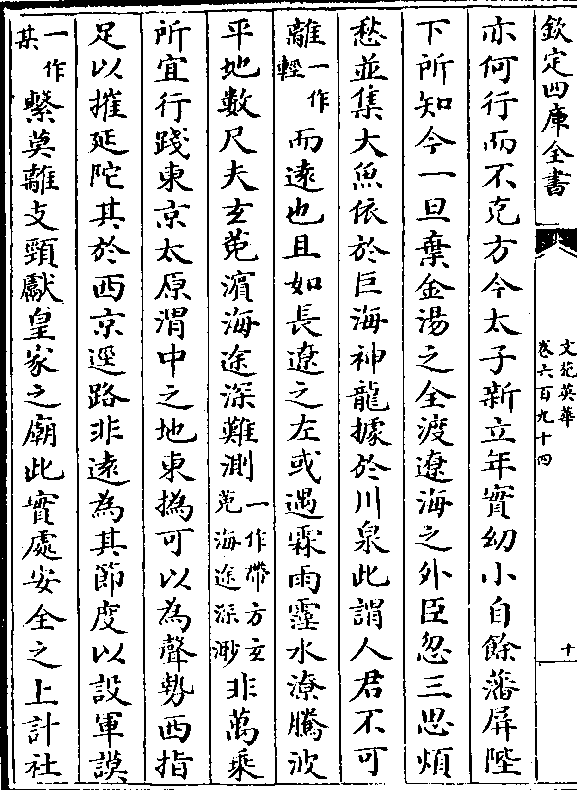 欽定四庫全書
文苑英華
卷六百九十四
十
亦何行而不克方今太子新立年實幼小自餘藩屏陛
下所知今一旦棄金湯之全渡遼海之外臣忽三思煩
愁並集大魚依於巨海神龍據於川泉此謂人君不可
離一作輕而遠也且如長遼之左或遇霖雨霪水潦騰波
平地數尺夫玄菟濵海途深難測一作帶方玄菟海途深渺非萬乘
所宜行踐東京太原渭中之地東撝可以為聲勢西指
足以摧延陀其於西京逕路非遠為其節度以設軍謨
一作其繫莫離支頸獻皇家之廟此實處安全之上計社